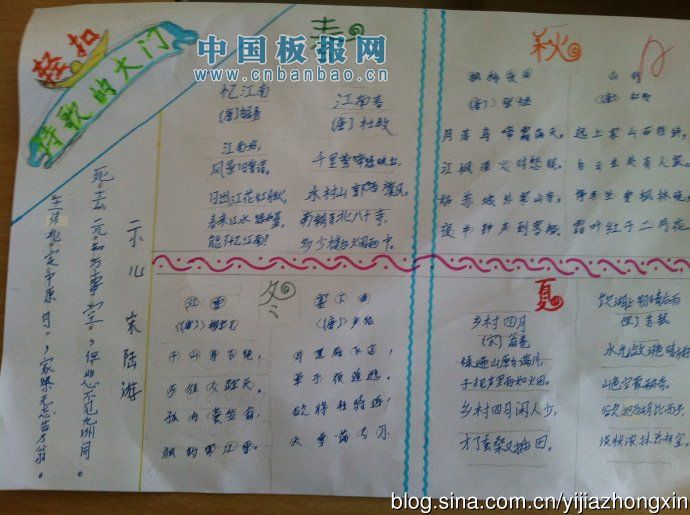 轻扣
诗歌的大门
中国板报网
www.cnbanbao.cn
春
忆江南
江南春
(唐)杜牧
江南好,
风景旧曾谙。
日出江花红胜火,
春来江水绿如蓝,
能不忆江南?
千里莺啼绿映红,
水村山郭酒旗风。
南朝四百八十寺,
多少楼台烟雨中。
秋
(唐)张继
月落乌啼霜满天,
江枫渔火对愁眠。
姑苏城外寒山寺,
夜半钟声到客船。
山行
(唐)杜牧
远上寒山石径斜,
白云生处有人家。
停车坐爱枫林晚,
霜叶红于二月花。
示儿 宋 陆游
死去元知万事空。
但悲不见九州同。
王师北定中原日,
家祭无忘告乃翁。
冬
江雪
(唐)柳宗元
千山鸟飞绝,
万径人踪灭。
孤舟蓑笠翁,
独钓寒江雪。
塞下曲
(唐)卢纶
月黑雁飞高,
单于夜遁逃。
欲将轻骑逐,
大雪满弓刀
夏
乡村四月
(宋)翁卷
绿遍山原白满川,
子规声里雨如烟。
乡村四月闲人少,
才了蚕桑又插田。
饮湖上初晴后雨
水光潋滟晴
山色空蒙
淡妆浓抹总相宜。
blog.sina.com.cn/yijiazhongxin